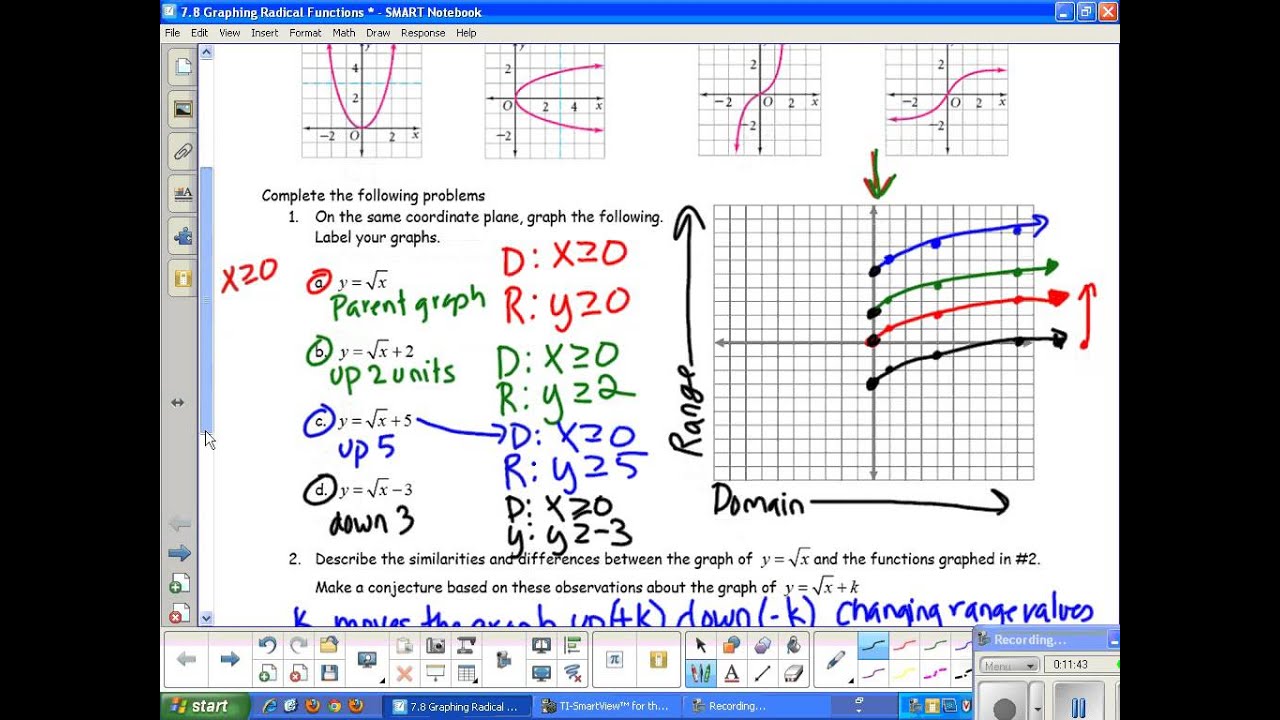 7.8 Graphing Radical Functions * - SMART Notebook
File Edit View Insert Format Math Draw Response Help
4
2
-2 O 2 x
2
O 2 4 x
-2
2
-2 O 2 x
-2
2
-2 O 2 x
-2
Complete the following problems
1. On the same coordinate plane, graph the following.
Label your graphs.
x≥0
a. y = √x
Parent graph
D: x≥0
R: y≥0
b. y = √x + 2
up 2 units
D: x≥0
R: y≥2
c. y = √x + 5
up 5
D: x≥0
R: y≥5
d. y = √x − 3
down 3
D: x≥0
y: y≥-3
Range
Domain
2. Describe the similarities and differences between the graph of y = √x and the functions graphed in #2.
Make a conjecture based on these observations about the graph of y = √x + k
K moves the graph up(+k) down(-k) changing range values
Recording...
Menu
0:11:43
start
7.8 Graphing Radical ...
TI-SmartView™ for th...
Recording...